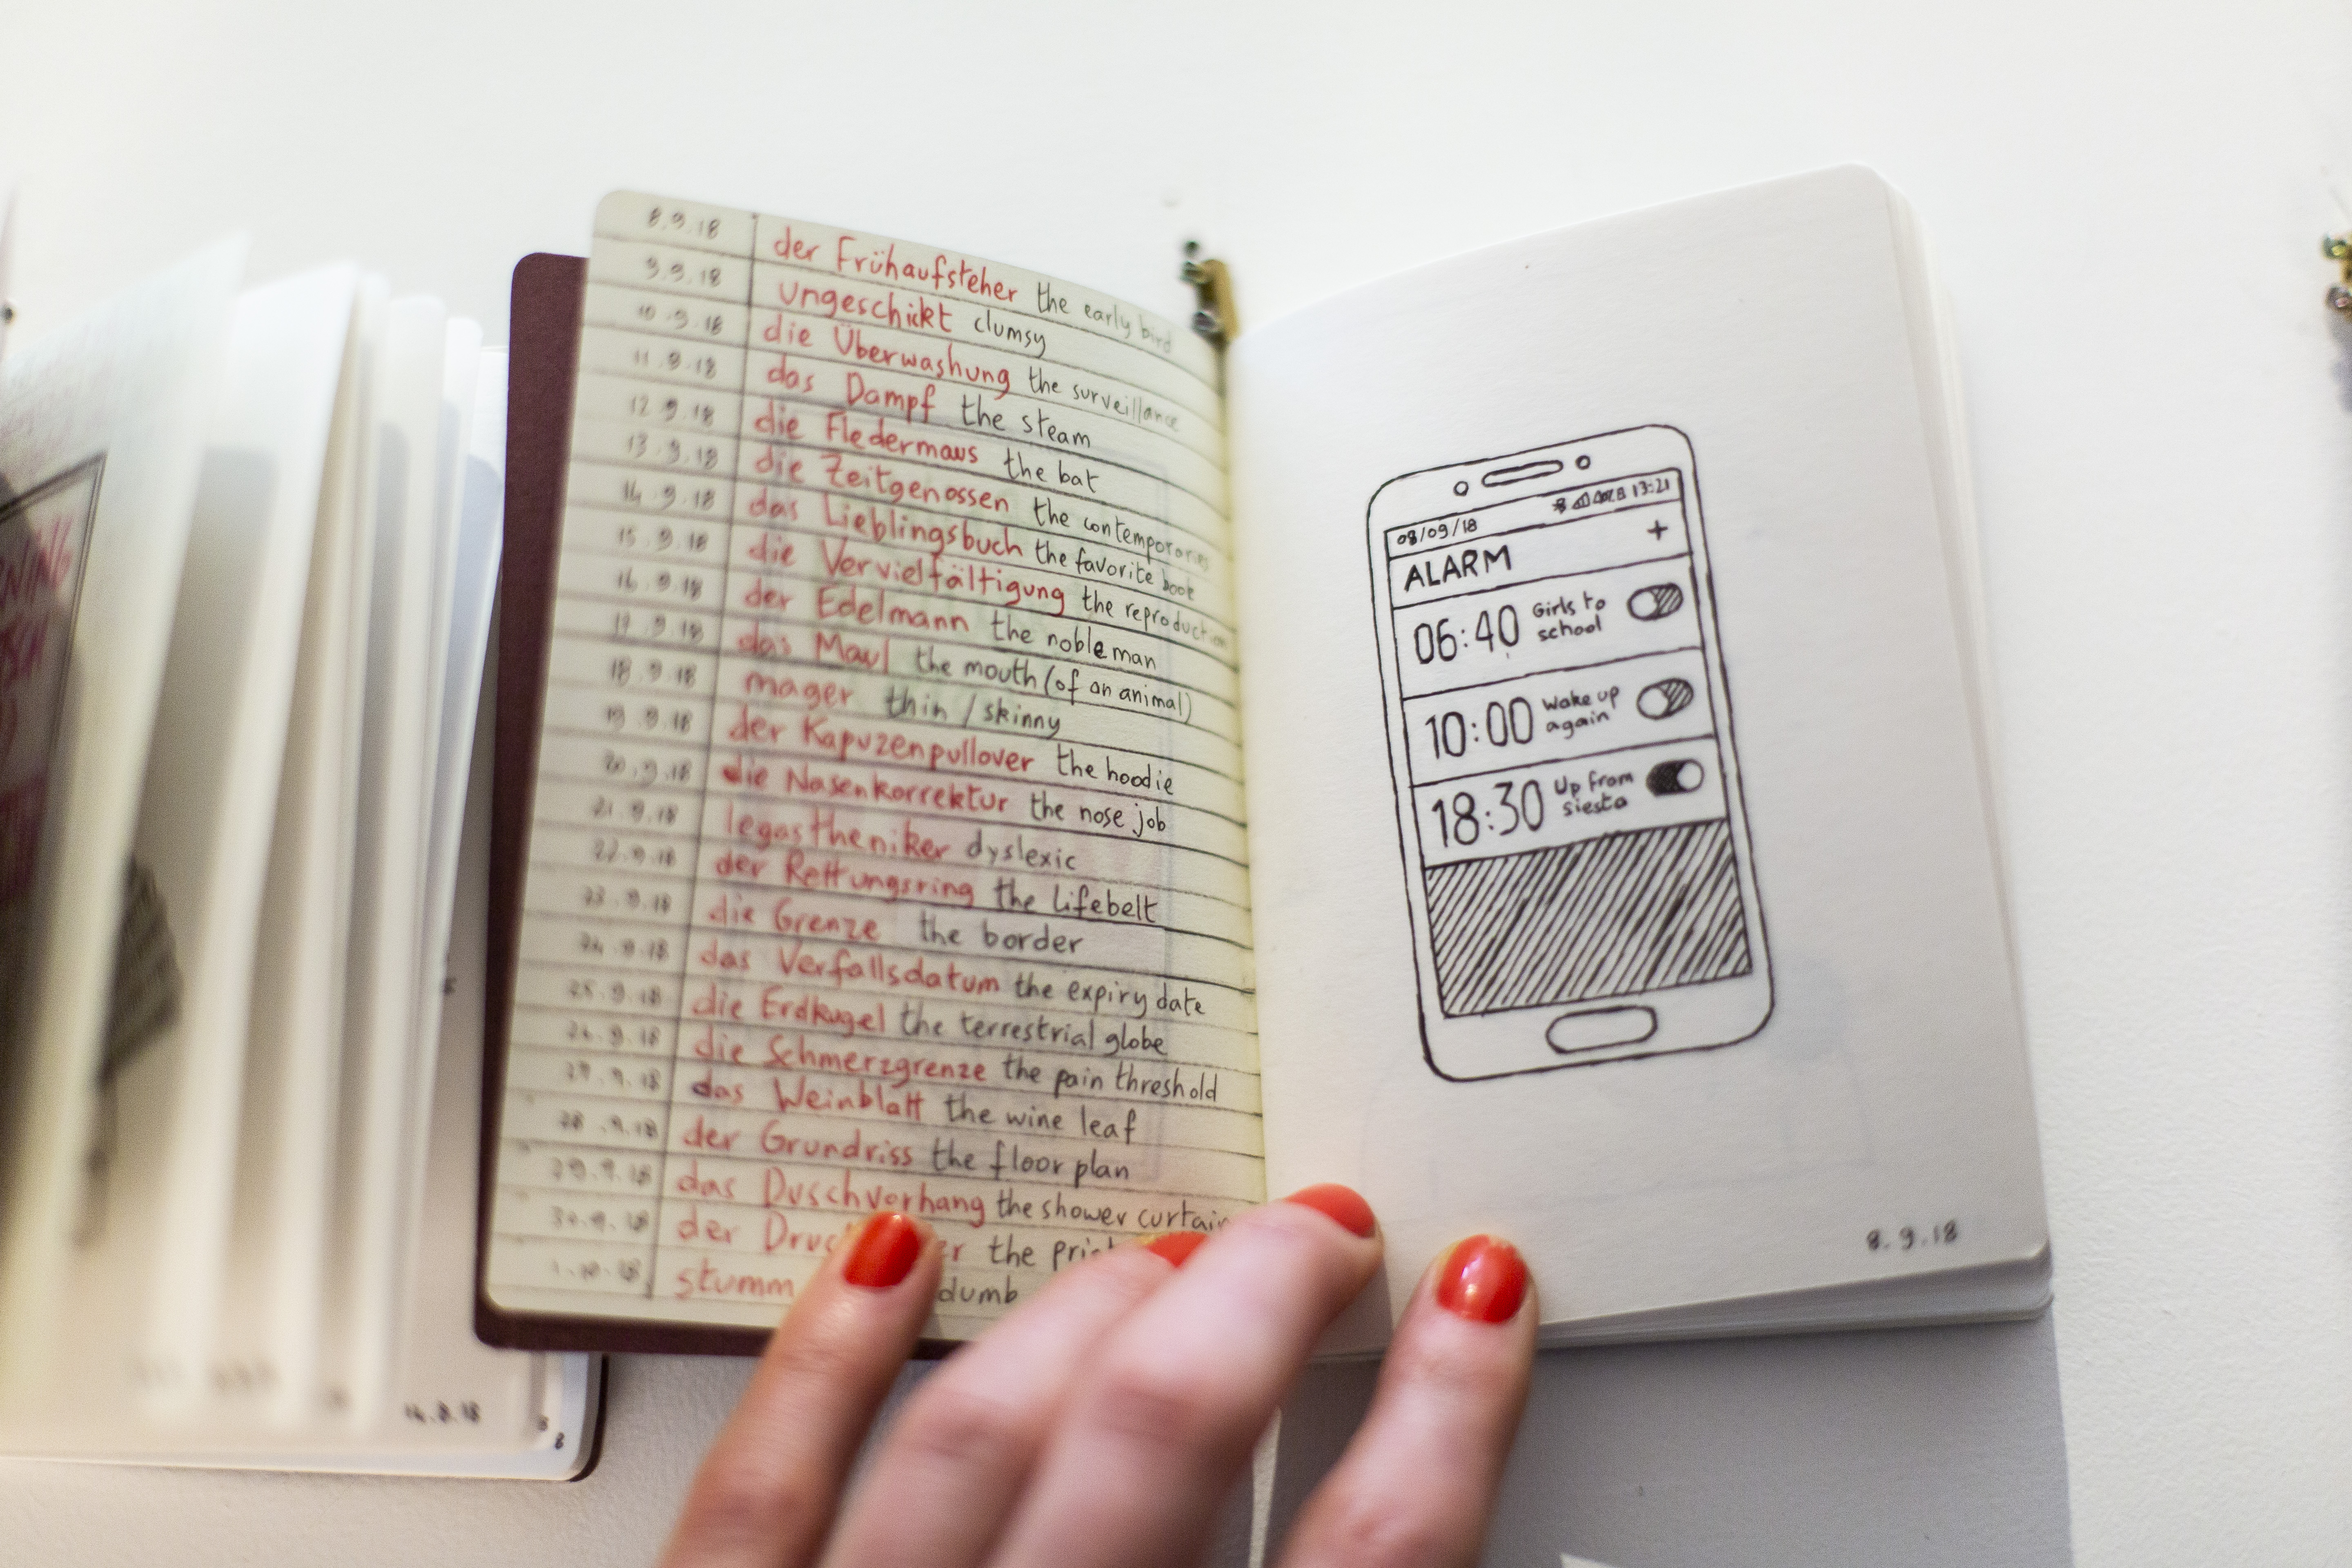 8.9.18 der Frühaufsteher the early bird
9.9.18 ungeschickt clumsy
10.9.18 die Überwashung the surveillance
11.9.18 das Dampf the steam
12.9.18 die Fledermaus the bat
13.9.18 die Zeitgenossen the contemporaries
14.9.18 das Lieblingsbuch the favorite book
15.9.18 die Vervielfältigung the reproduction
16.9.18 der Edelmann the nobleman
17.9.18 das Maul the mouth (of an animal)
18.9.18 mager thin / skinny
19.9.18 der Kapuzenpullover the hoodie
20.9.18 die Nasenkorrektur the nose job
21.9.18 legastheniker dyslexic
22.9.18 der Rettungsring the lifebelt
23.9.18 die Grenze the border
24.9.18 das Verfallsdatum the expiry date
25.9.18 die Erdkugel the terrestrial globe
26.9.18 die Schmerzgrenze the pain threshold
27.9.18 das Weinblatt the wine leaf
28.9.18 der Grundriss the floor plan
29.9.18 das Duschvorhang the shower curtain
30.9.18 der the
1.10.18 stumm dumb
08/09/18 13:21
ALARM +
06:40 Girls to
school
10:00 Wake up
again
18:30 Up from
siesta
8.9.18
14.8.18